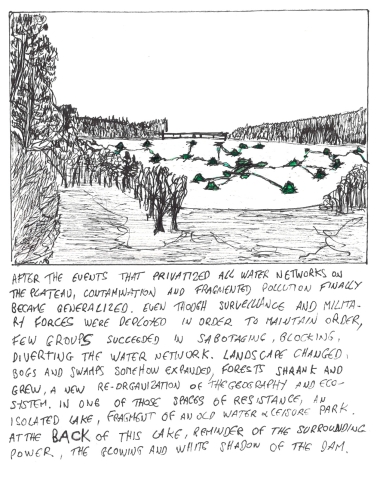 AFTER THE EVENTS THAT PRIVATIZED ALL WATER NETWORKS ON
THE PLATEAU, CONTAMINATION AND FRAGMENTED POLLUTION FINALLY
BECAME GENERALIZED. EVEN THOUGH SURVEILLANCE AND MILITA-
RY FORCES WERE DEPLOYED IN ORDER TO MAINTAIN ORDER,
FEW GROUPS SUCCEEDED IN SABOTAGING, BLOCKING,
DIVERTING THE WATER NETWORK. LANDSCAPE CHANGED,
BOGS AND SWAMPS SOMEHOW EXPANDED, FORESTS SHRANK AND
GREW, A NEW RE-ORGANIZATION OF THE GEOGRAPHY AND ECO-
SYSTEM. IN ONE OF THOSE SPACES OF RESISTANCE, AN
ISOLATED LAKE, FRAGMENT OF AN OLD WATER & LEISURE PARK.
AT THE BACK OF THIS LAKE, REMINDER OF THE SURROUNDING
POWER, THE GLOWING AND WHITE SHADOW OF THE DAM.